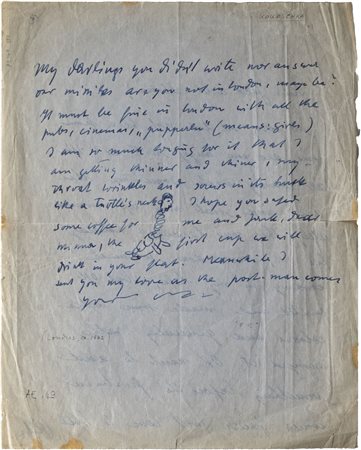 My darlings you didn't write nor answer
our missiles are you not in london, maybe?
It must be fine in london with all the
pubs, cinemas, (means: girls)
I am so much longing for it that I
am getting thinner and thiner, my
throat wrinkles and screws in its
like a turtle's neck. I hope you
some coffee for me and
minna, the first cup we will
drink in your flat. Meanwhile I
send you my love as the post-man comes
your
Londres, ca.
AE 143